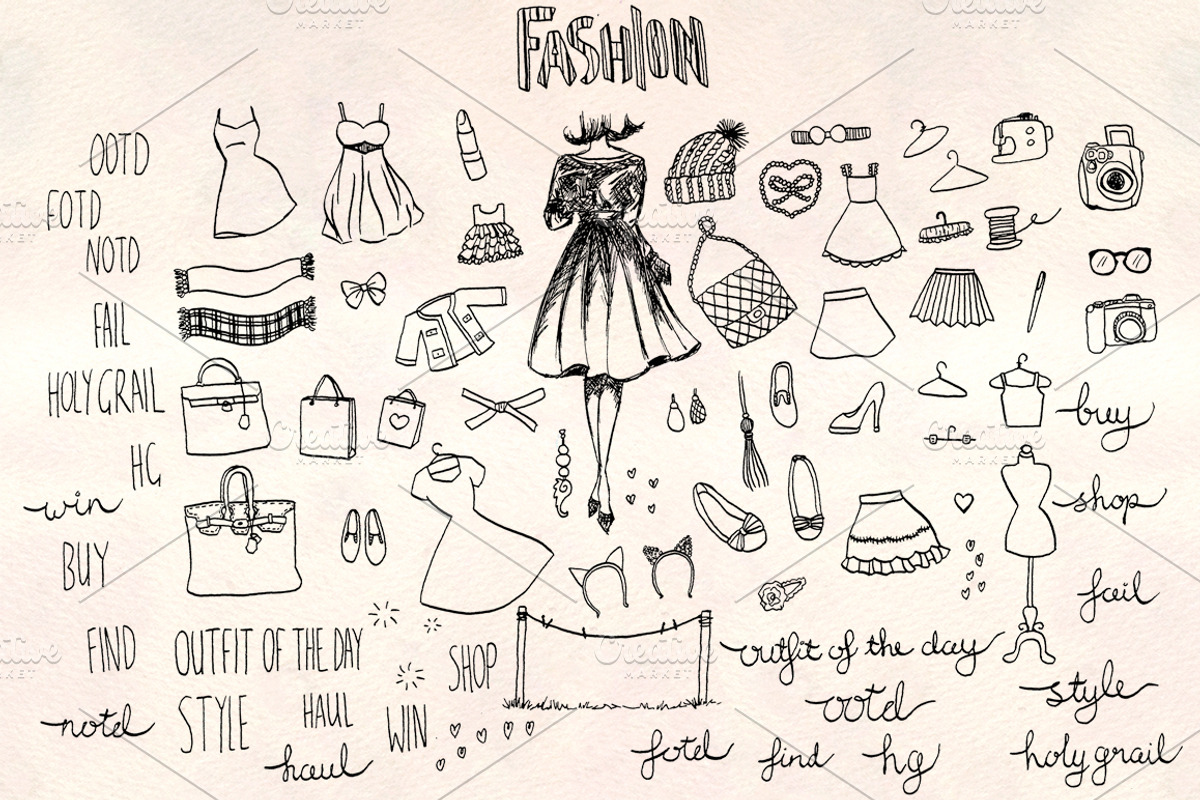 FASHION
OOTD
FOTD
NOTD
FAIL
HOLY GRAIL
HG
win
BUY
FIND
OUTFIT OF THE DAY
SHOP
STYLE
HAUL
WIN
notd
haul
buy
shop
fail
outfit of the day
style
ootd
fotd
find
hg
holy grail
Creative
MARKET